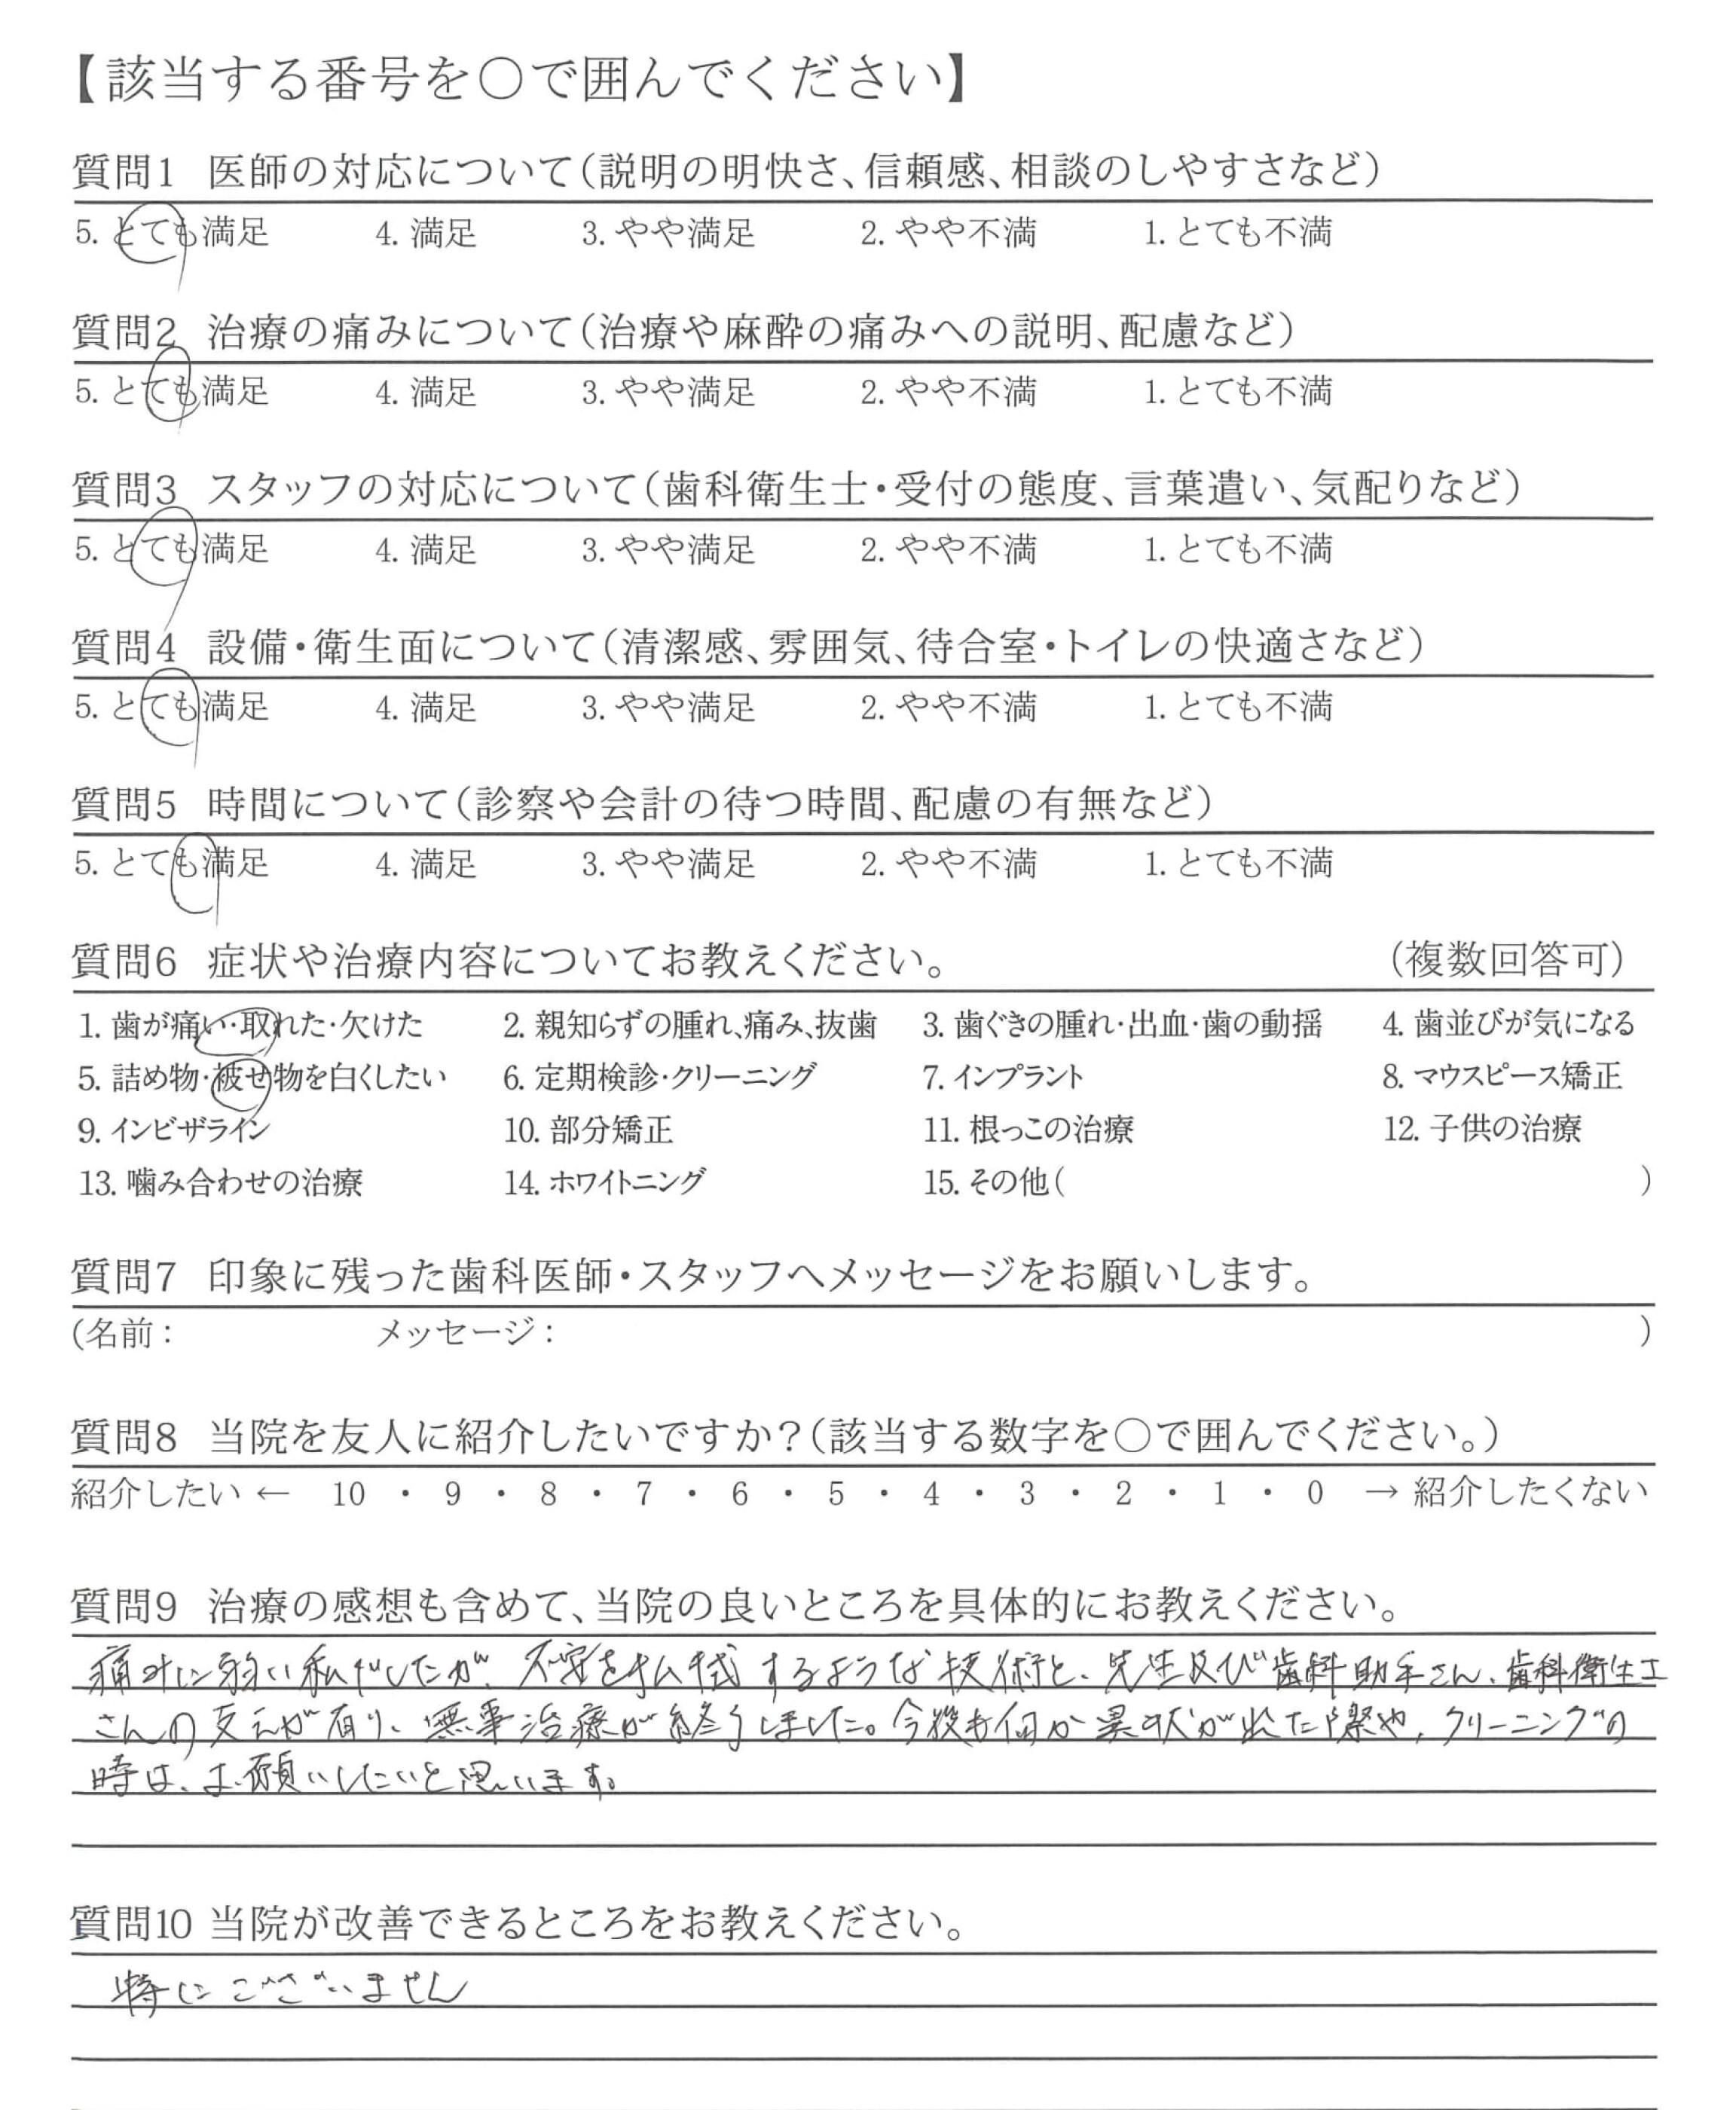 【該当する番号を○で囲んでください】
質問1 医師の対応について(説明の明快さ、信頼感、相談のしやすさなど)
5. とても満足 4. 満足 3. やや満足 2. やや不満 1. とても不満
質問2 治療の痛みについて(治療や麻酔の痛みへの説明、配慮など)
5. とても満足 4. 満足 3. やや満足 2. やや不満 1. とても不満
質問3 スタッフの対応について(歯科衛生士・受付の態度、言葉遣い、気配りなど)
5. とても満足 4. 満足 3. やや満足 2. やや不満 1. とても不満
質問4 設備・衛生面について(清潔感、雰囲気、待合室・トイレの快適さなど)
5. とても満足 4. 満足 3. やや満足 2. やや不満 1. とても不満
質問5 時間について(診察や会計の待つ時間、配慮の有無など)
5. とても満足 4. 満足 3. やや満足 2. やや不満 1. とても不満
質問6 症状や治療内容についてお教えください。 (複数回答可)
1. 歯が痛い・取れた・欠けた 2. 親知らずの腫れ、痛み、抜歯 3. 歯ぐきの腫れ・出血・歯の動揺 4. 歯並びが気になる
5. 詰め物・被せ物を白くしたい 6. 定期検診・クリーニング 7. インプラント 8. マウスピース矯正
9. インビザライン 10. 部分矯正 11. 根っこの治療 12. 子供の治療
13. 噛み合わせの治療 14. ホワイトニング 15. その他( )
質問7 印象に残った歯科医師・スタッフへメッセージをお願いします。
(名前: メッセージ: )
質問8 当院を友人に紹介したいですか?(該当する数字を○で囲んでください。)
紹介したい ← 10 ・ 9 ・ 8 ・ 7 ・ 6 ・ 5 ・ 4 ・ 3 ・ 2 ・ 1 ・ 0 → 紹介したくない
質問9 治療の感想も含めて、当院の良いところを具体的にお教えください。
痛みに弱い私でしたが、不安を払拭するような技術と、先生及び歯科助手さん、歯科衛生士
さんの支えが有り、無事治療が終了しました。今後も何か異状が出た際や、クリーニングの
時は、お願いしたいと思います。
質問10 当院が改善できるところをお教えください。
特にございません